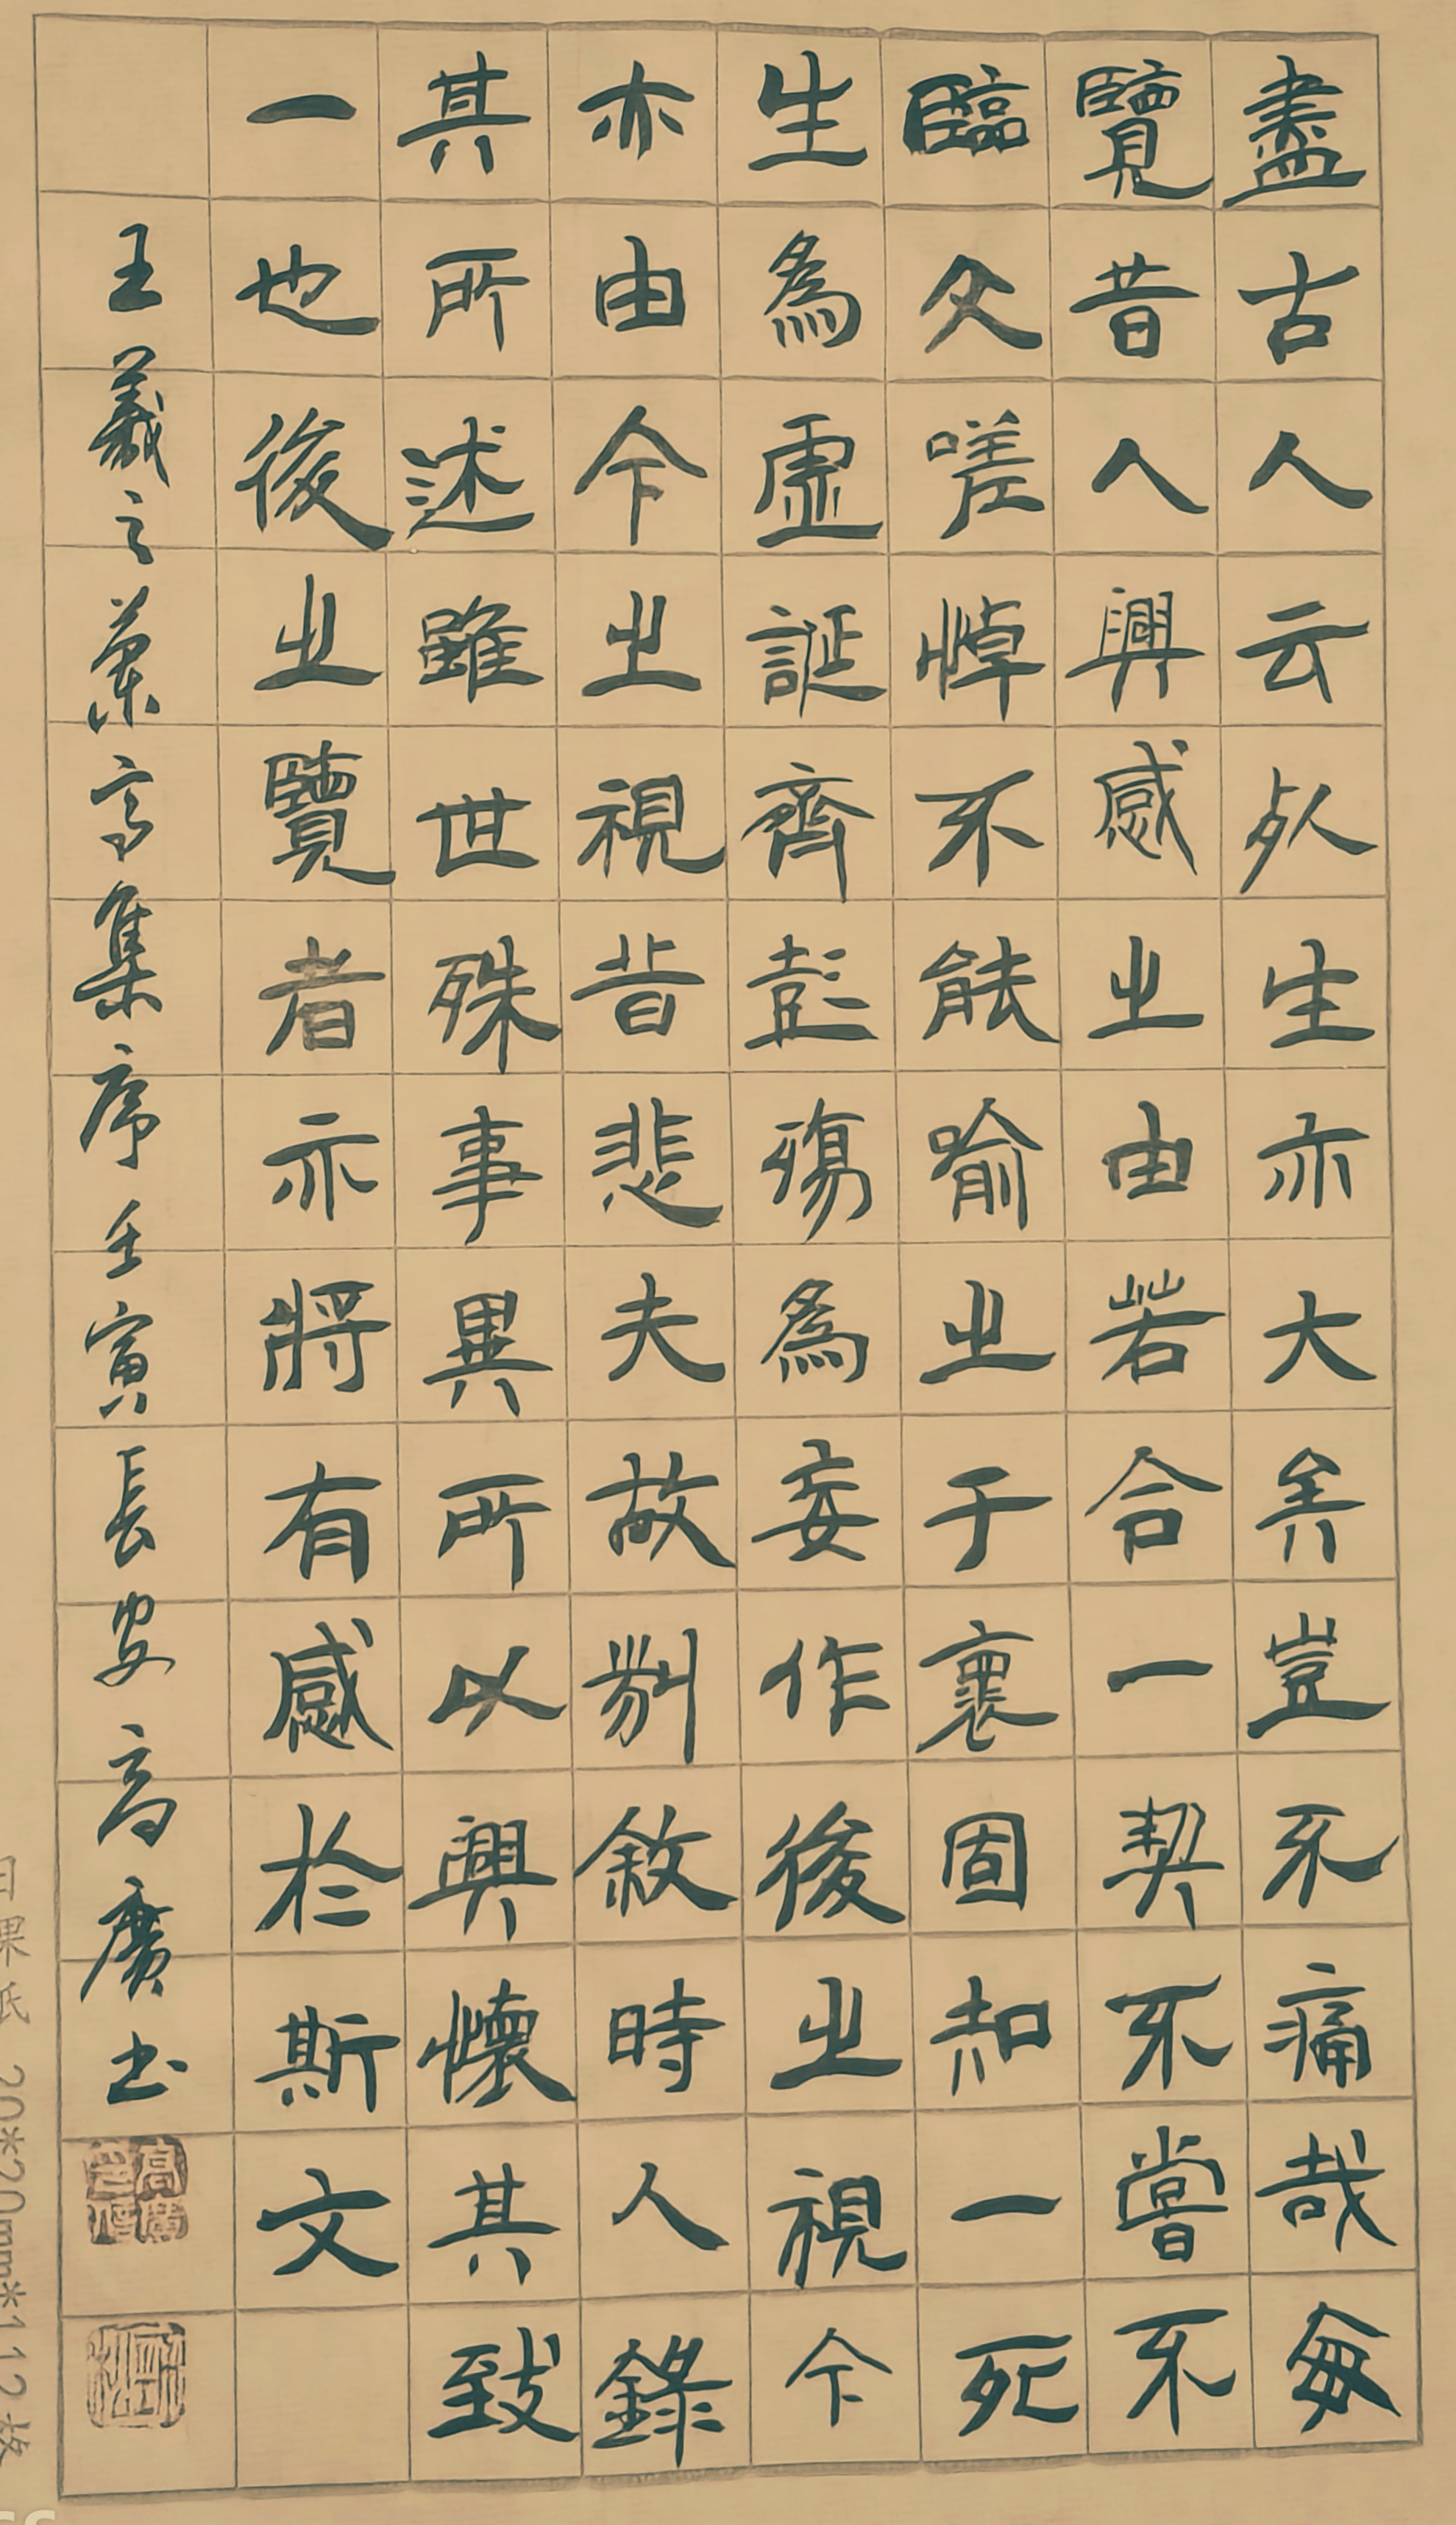 盡古人云死生亦大矣豈不痛哉每
覽昔人興感之由若合一契不嘗不
臨文嗟悼不能喻之于褱固知一死
生為虛誕齊彭殤為妄作後之視今
亦由今之視昔悲夫故列敘時人錄
其所述雖世殊事異所以興懷其致
一也後之覽者亦將有感於斯文
王羲之蘭亭集序壬寅長安高廣書
20*20mm*112格